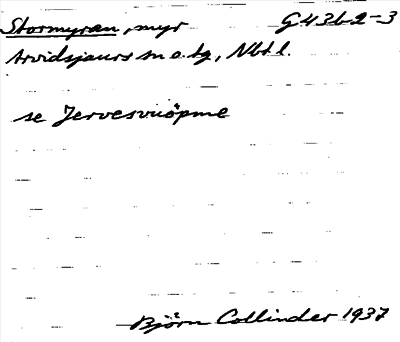 Stormyran, myr G43b2-3
Arvidsjaurs sn o. tg, Nbt l.
se Jervesvuöpme
Björn Collinder 1937